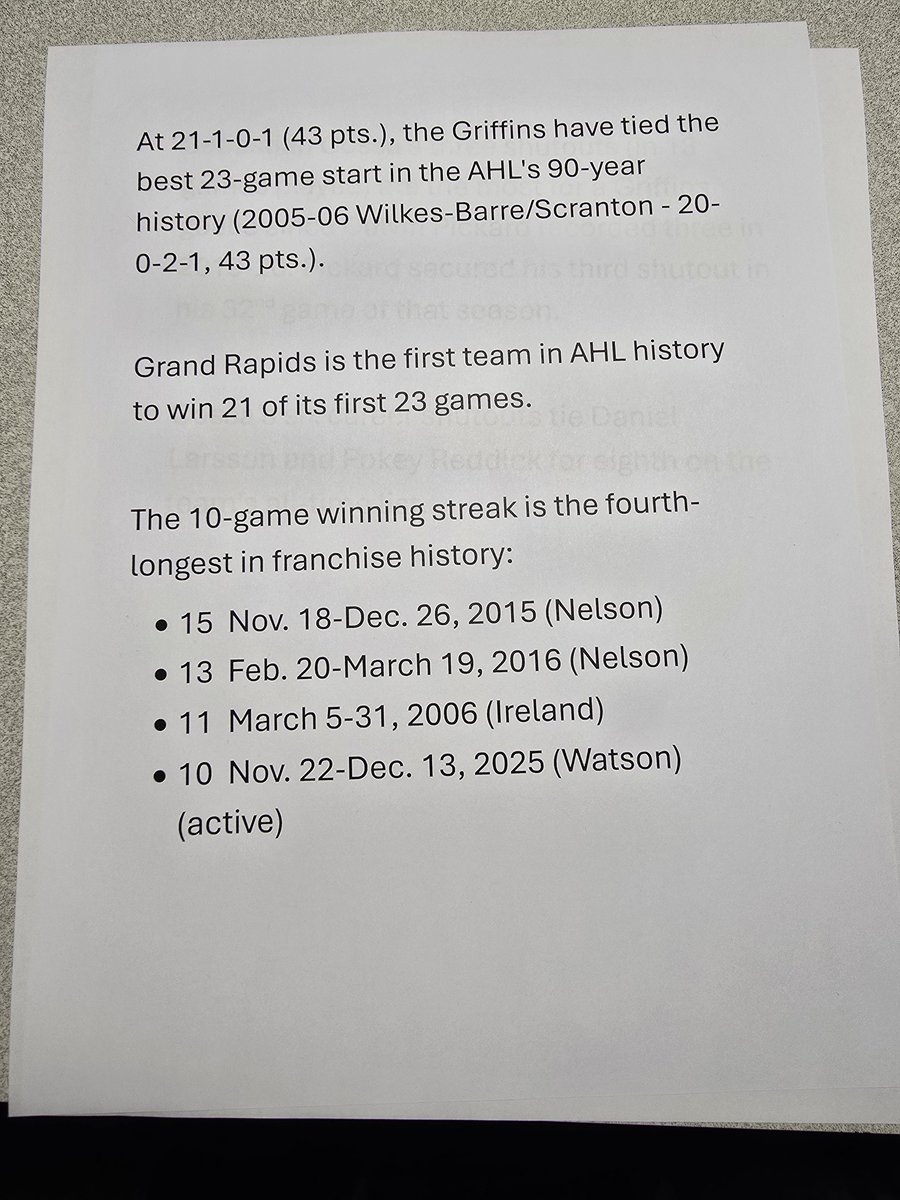 At 21-1-0-1 (43 pts.), the Griffins have tied the
best 23-game start in the AHL's 90-year
history (2005-06 Wilkes-Barre/Scranton - 20-
0-2-1, 43 pts.).
ckard secured his third shutout in
his 32nd game of that season.
Grand Rapids is the first team in AHL history
to win 21 of its first 23 games.
tie Daniel
Larsson and Pokey Reddick for eighth on the
The 10-game winning streak is the fourth-
longest in franchise history:
• 15 Nov. 18-Dec. 26, 2015 (Nelson)
• 13 Feb. 20-March 19, 2016 (Nelson)
• 11 March 5-31, 2006 (Ireland)
• 10 Nov. 22-Dec. 13, 2025 (Watson)
(active)